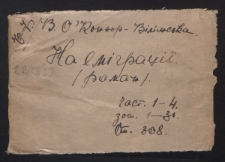 В. О Кошор-Вілімсова.
На еміграції
/роман/.
Част. 1-4.
зош. 1-31.
Ст. 308.